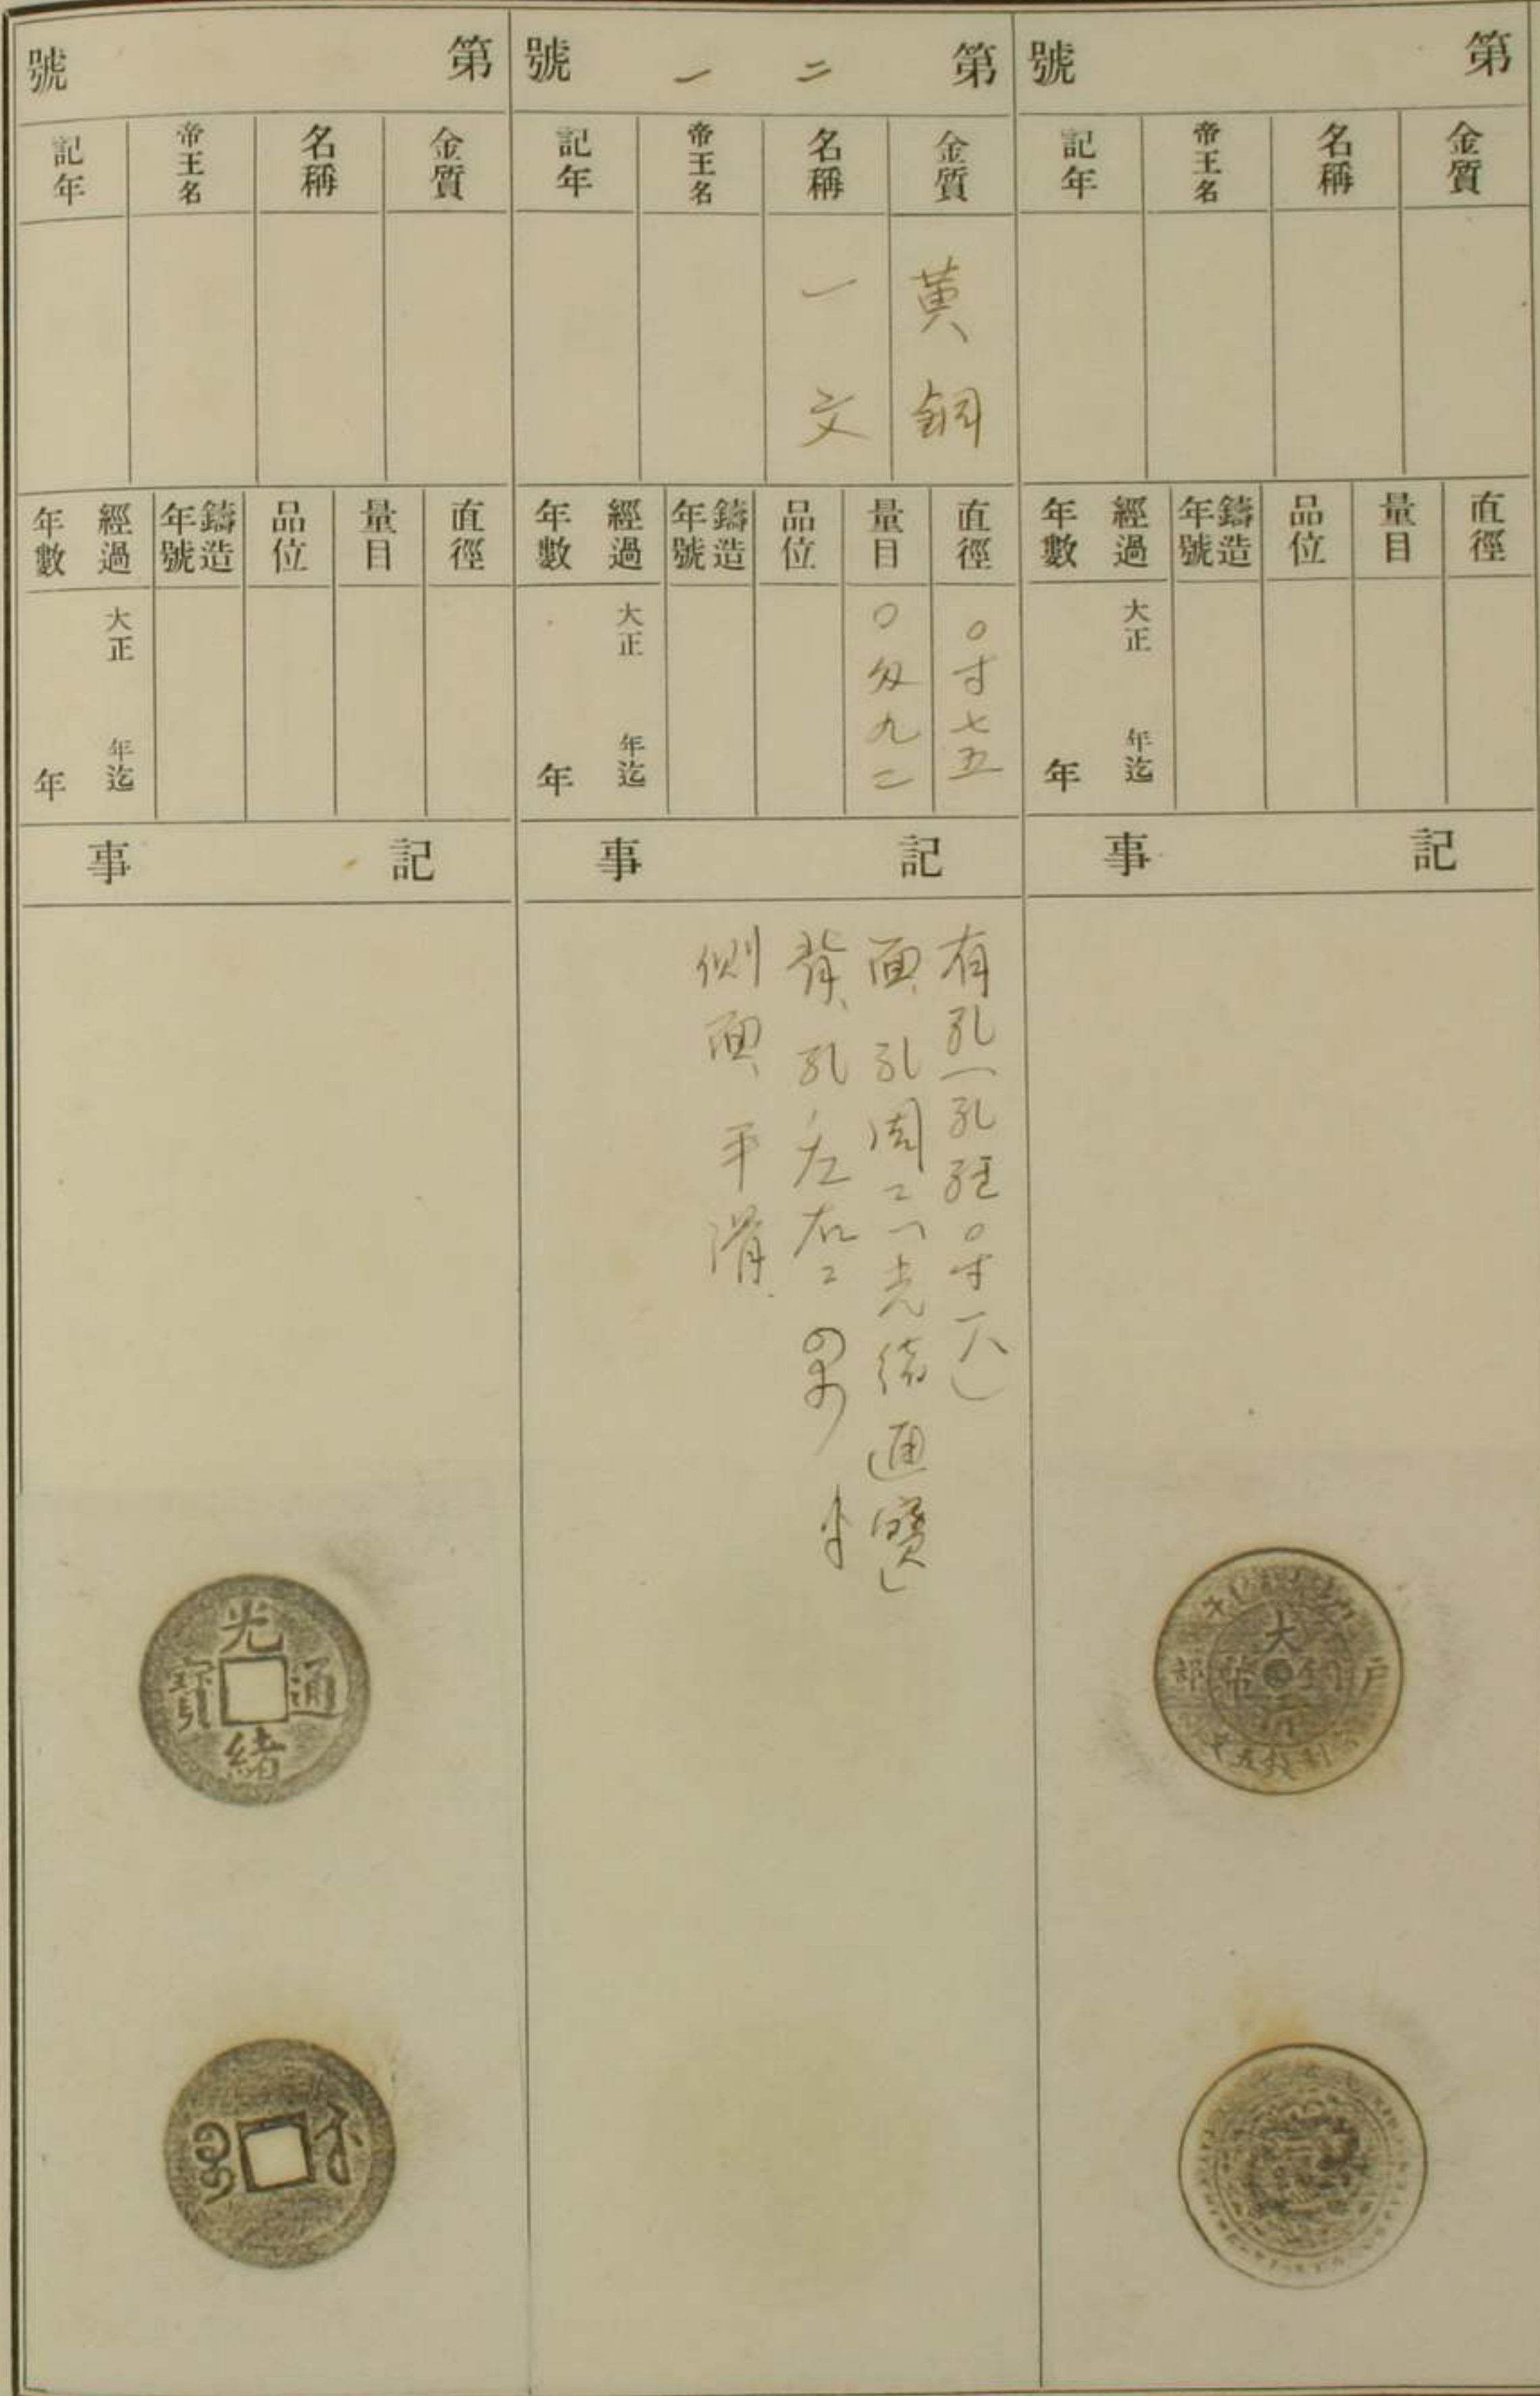 第 號
金質
名稱
帝王名
記年
直徑
量目
品位
鑄造年號
經過年數
大正 年迄
年
記事
大清銅幣
戶部
第二一號
金質
黃銅
名稱
一文
帝王名
記年
直徑
〇寸七五
量目
〇匁九二
品位
鑄造年號
經過年數
大正 年迄
年
記事
有孔(孔徑〇寸一八)
面、孔周ニ「光緒通寶」
背、孔ノ左右ニ
側面、平滑
第 號
金質
名稱
帝王名
記年
直徑
量目
品位
鑄造年號
經過年數
大正 年迄
年
記事
光緒通寶